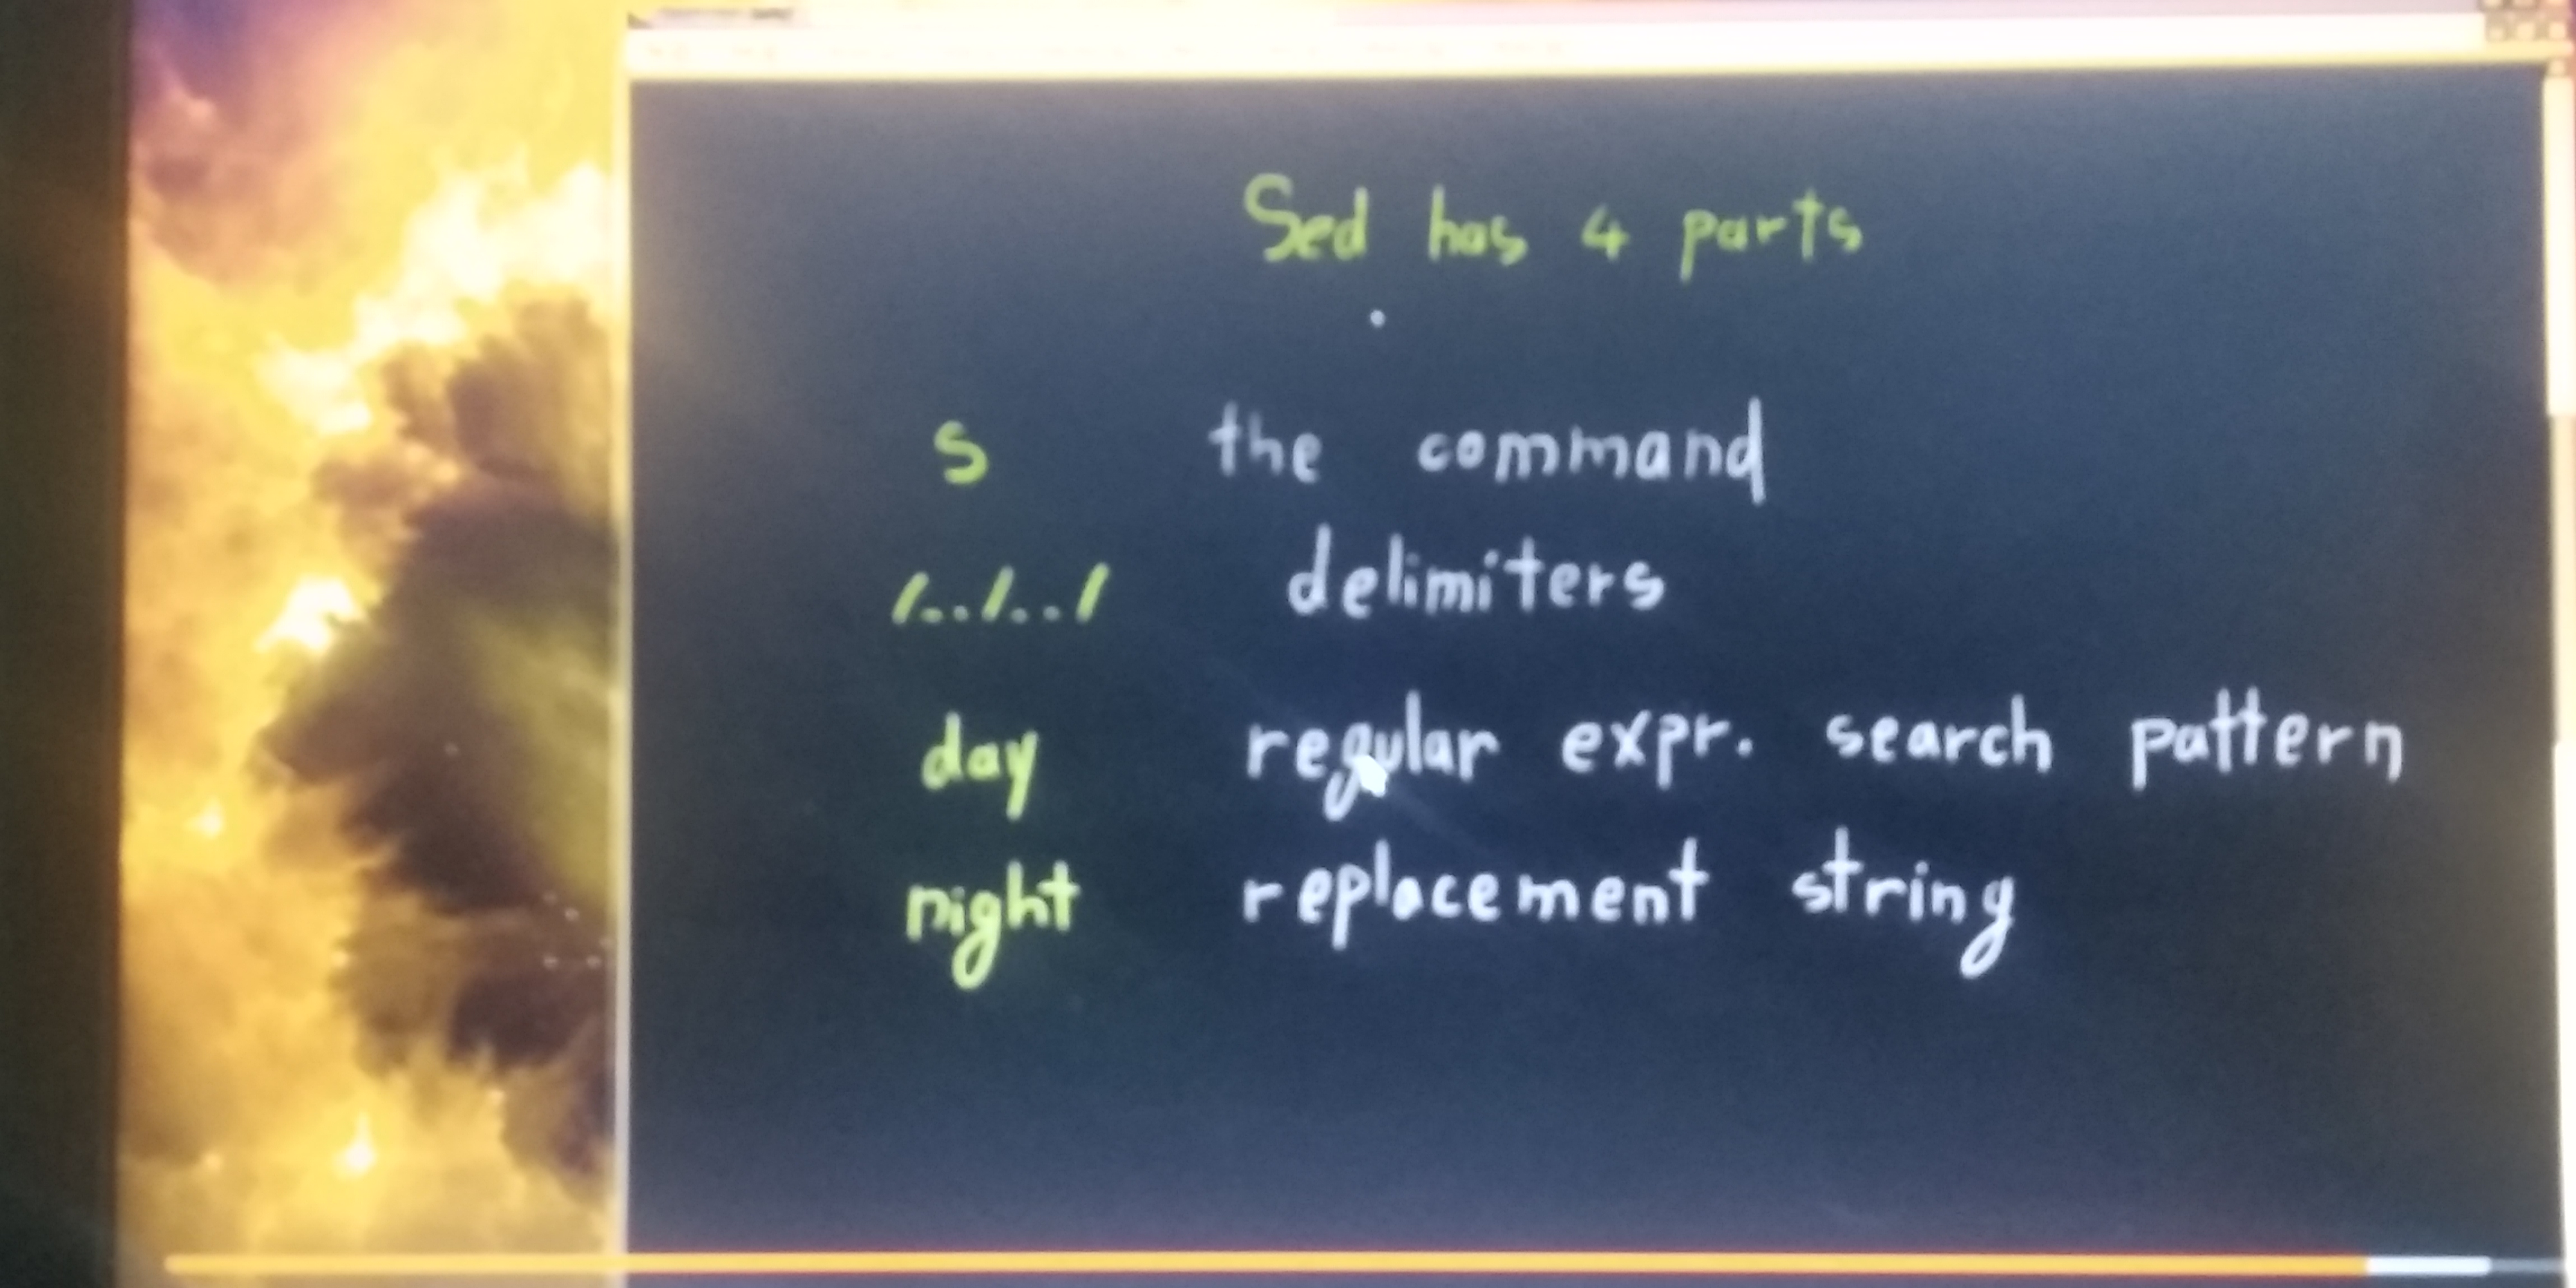 Sed has 4 parts
s the command
/../../ delimiters
day regular expr. search pattern
night replacement string